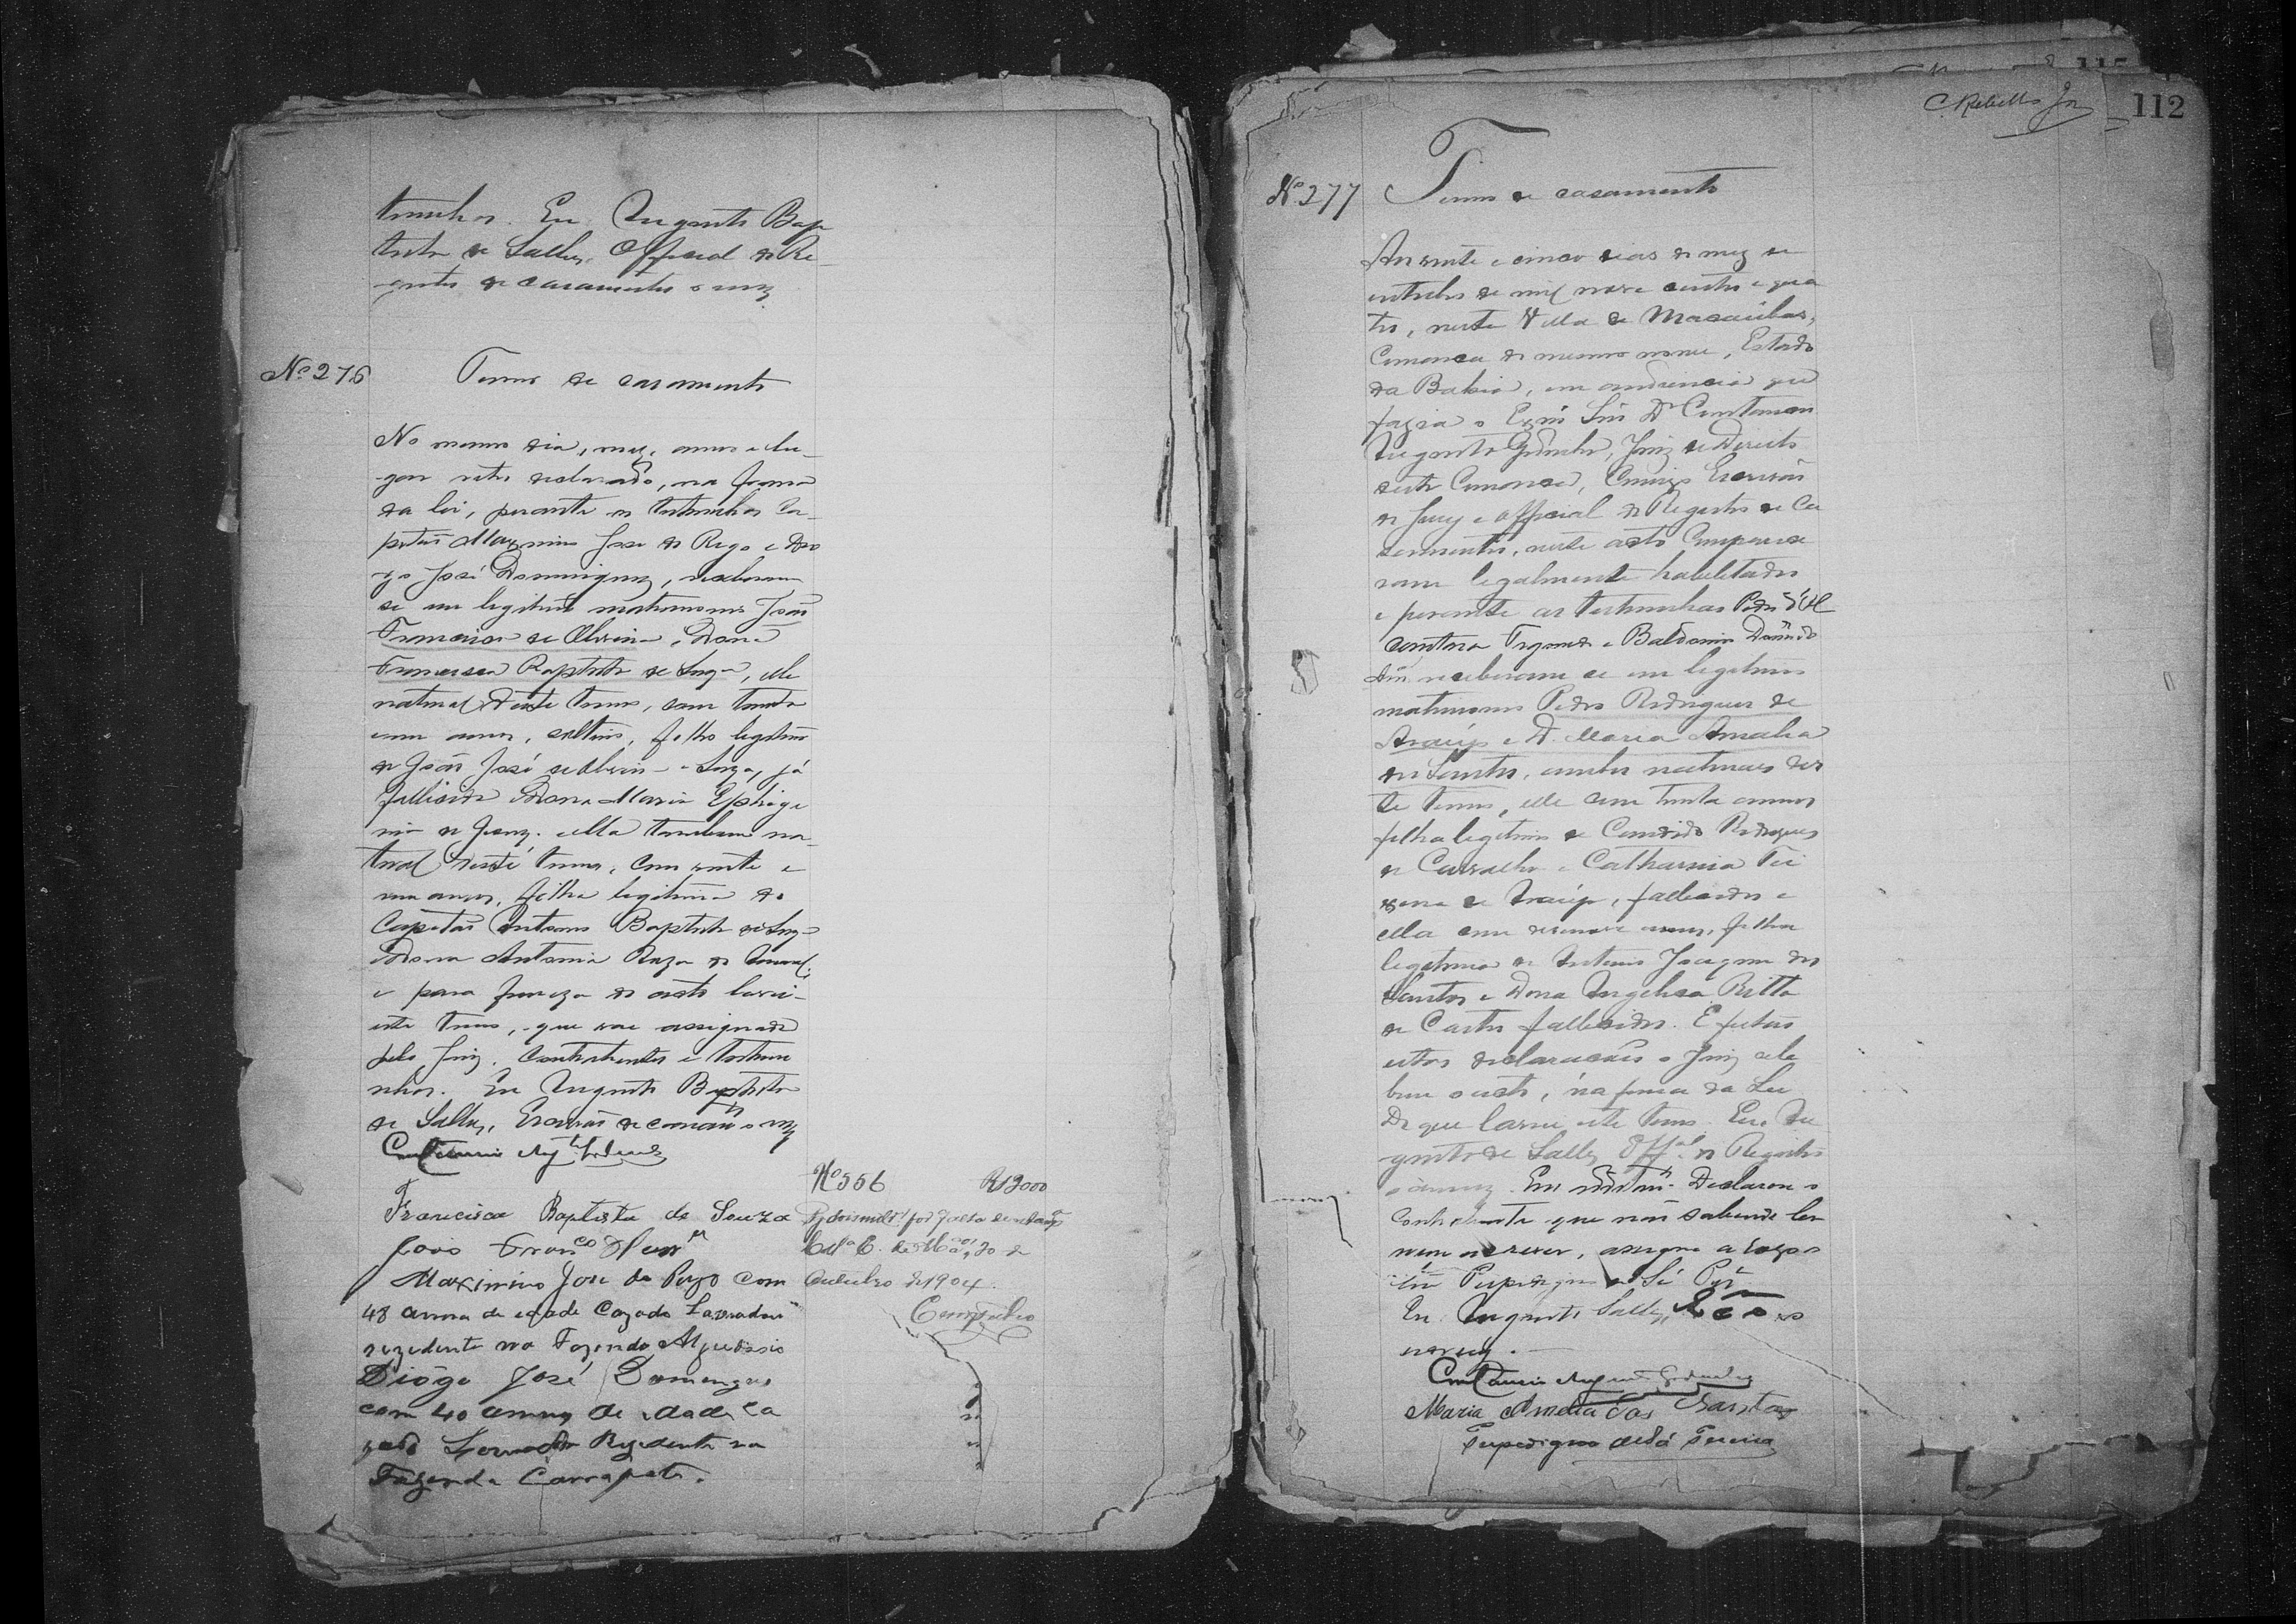 tunhas. Eu Augusto Bap
tista de Salles, Official do Re-
gistro de casamentos o escrevy
Nº 276
Termo de casamento
No mesmo dia, mez, anno e lu-
gar retro declarado, na forma
da lei, perante as testemunhas Ca-
pitão Maximino José do Rego e Dio
go José Domingues, receberam
se em legitimo matrimonio João
Francisco de Oliveira e Dona
Francisca Baptista de Souza, elle
natural deste termo, com trinta
annos, solteiro, filho legitimo
de João José de Oliveira e Souza, já
fallecido e Dona Maria Ephige
nia de Jesus. ella tambem na-
tural deste termo, com vinte e
um annos, filha legitima do
Capitão Antonio Baptista de Souza
e Dona Antonia Roza do Amaral;
e para firmeza do acto lavrei
este termo, que vae assignado
pelo Juiz, Contrahentes e testemu
nhas. Eu Augusto Baptista
de Salles, Escrivão de casamtos o escrevy
Francisca Baptista de Souza
João Franco Olivra
Maximino José do Rego com
48 annos de edade Cazado Lavrador
rezedente na Fazenda Algudasio
Diôgo José Domengues
com 40 annos de idade ca
zado Lavrador Rezidente na
Fazenda Carrapato.
Nº 556 R 2000
Pg dois mil rs por falta de sellos
Outubro de 1904.
C. Rebello Jor
112
Nº 277
Termo de casamento
Aos vinte e cinco dias do mez de
outubro de mil nove centos e qua
tro, nesta Villa de Macaúbas,
Comarca do mesmo nome, Estado
da Bahia, em audiencia que
fazia o Exmo Snr Dr Constancio
Augusto Godinho, Juiz de Direito
desta Comarca, Comigo Escrivão
do Jury e official do Registro de Ca
samentos, neste acto Comparece
ram legalmente habilitados
e perante as testemunhas Pedro d'Al
cantara Trigueiro e Baldoino
receberam se em legitimo
matrimonio Pedro Rodrigues de
Araujo e D. Maria Amalia
dos Santos, ambos naturaes des
te termo, elle com trinta annos
filho legitimo de Candido Rodrigues
de Carvalho e Catharina
de Araujo, fallecidos e
ella com desenove annos, filha
legitima de Antonio Joaquim dos
Santos e Dona Angelica Ritta
de Castro fallecidos. E feitas
estas declarações o Juiz cele
brou o acto, na forma da Lei
De que lavrei este termo. Eu Au
gusto de Salles, Offal do Registro
o escrevy. Em additamto Declarou o
contrahente que não sabendo ler
nem escrever, assigna a rogo o
Snr Perpedigno de Sá Perra
Eu Augusto Salles,
escrevy.
Maria Amelia dos Santos
Perpedigno de Sá Pereira